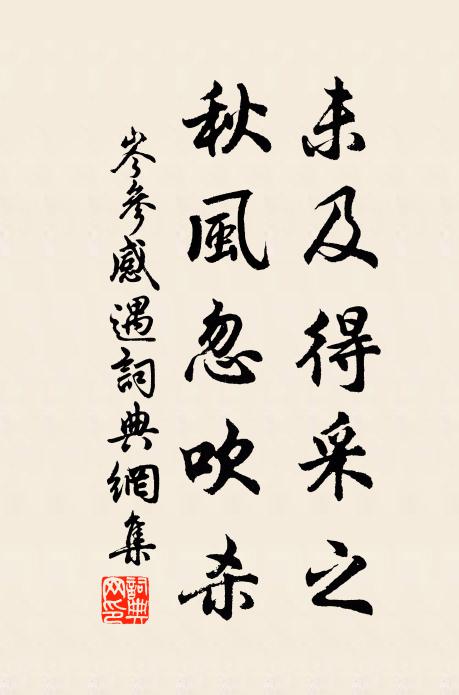 未及得采之
秋風忽吹杀
岑參感遇詞典網集
詞典網印